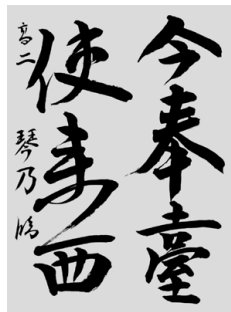 今奉臺
使来西
高二 琴乃